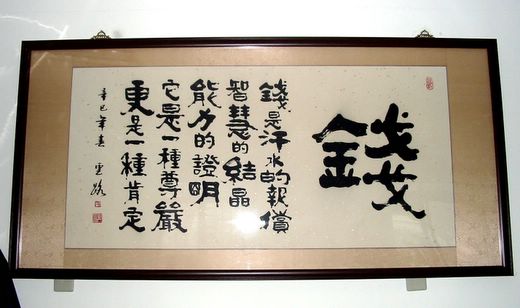 錢
錢是汗水的報償
智慧的結晶
能力的證明
它是一種尊嚴
更是一種肯定
辛巳年春